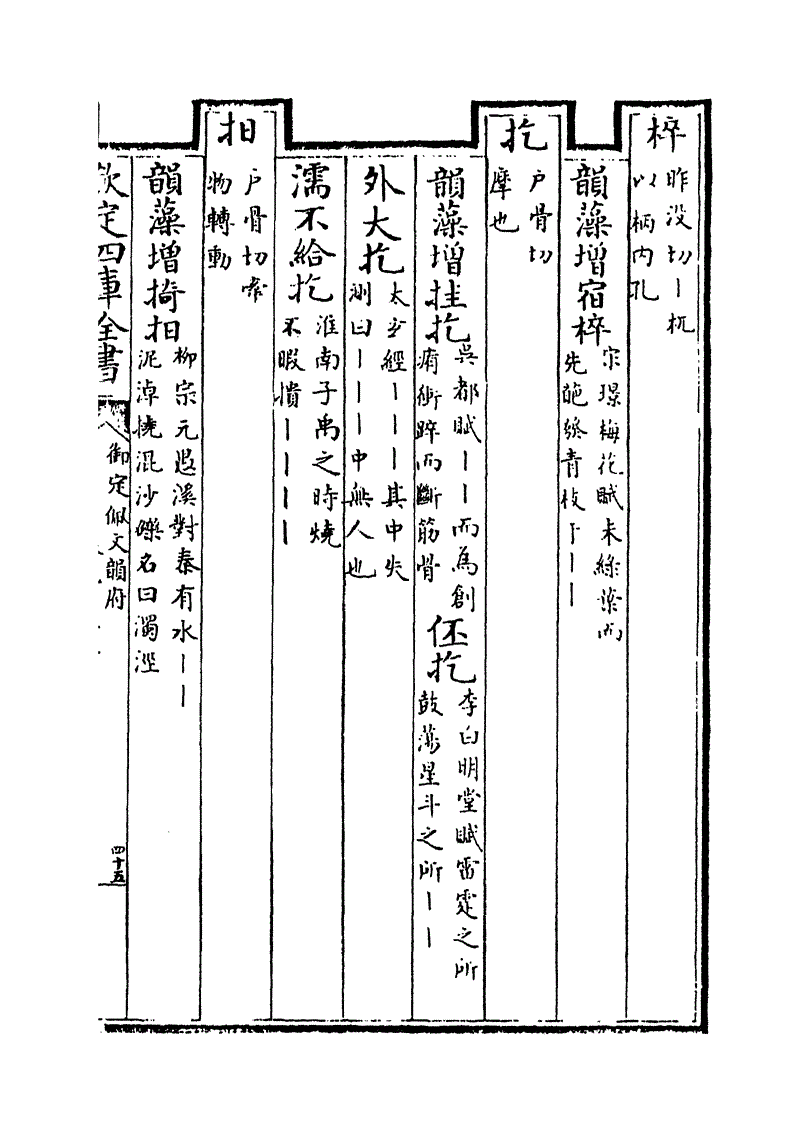 捽昨没切丨杌
以柄内孔
韻藻增宿捽宗璟梅花賦未綠葉而
先葩發青枝于丨丨
扢戶骨切
摩也
韻藻增挂扢吳都賦丨丨而為創
痏衝踤而斷筋骨伾扢李白明堂賦雷霆之所
鼓蕩星斗之所丨丨
外大扢太𤣥經丨丨丨其中失
測曰丨丨丨中無人也
濡不給扢淮南子禹之時燒
不暇撌丨丨丨丨
抇戶骨切牽
物轉動
韻藻增掎抇柳宗元愚溪對秦有水丨丨
泥淖撓混沙礫名曰濁涇
欽定四庫全書
御定佩文韻府
四十五